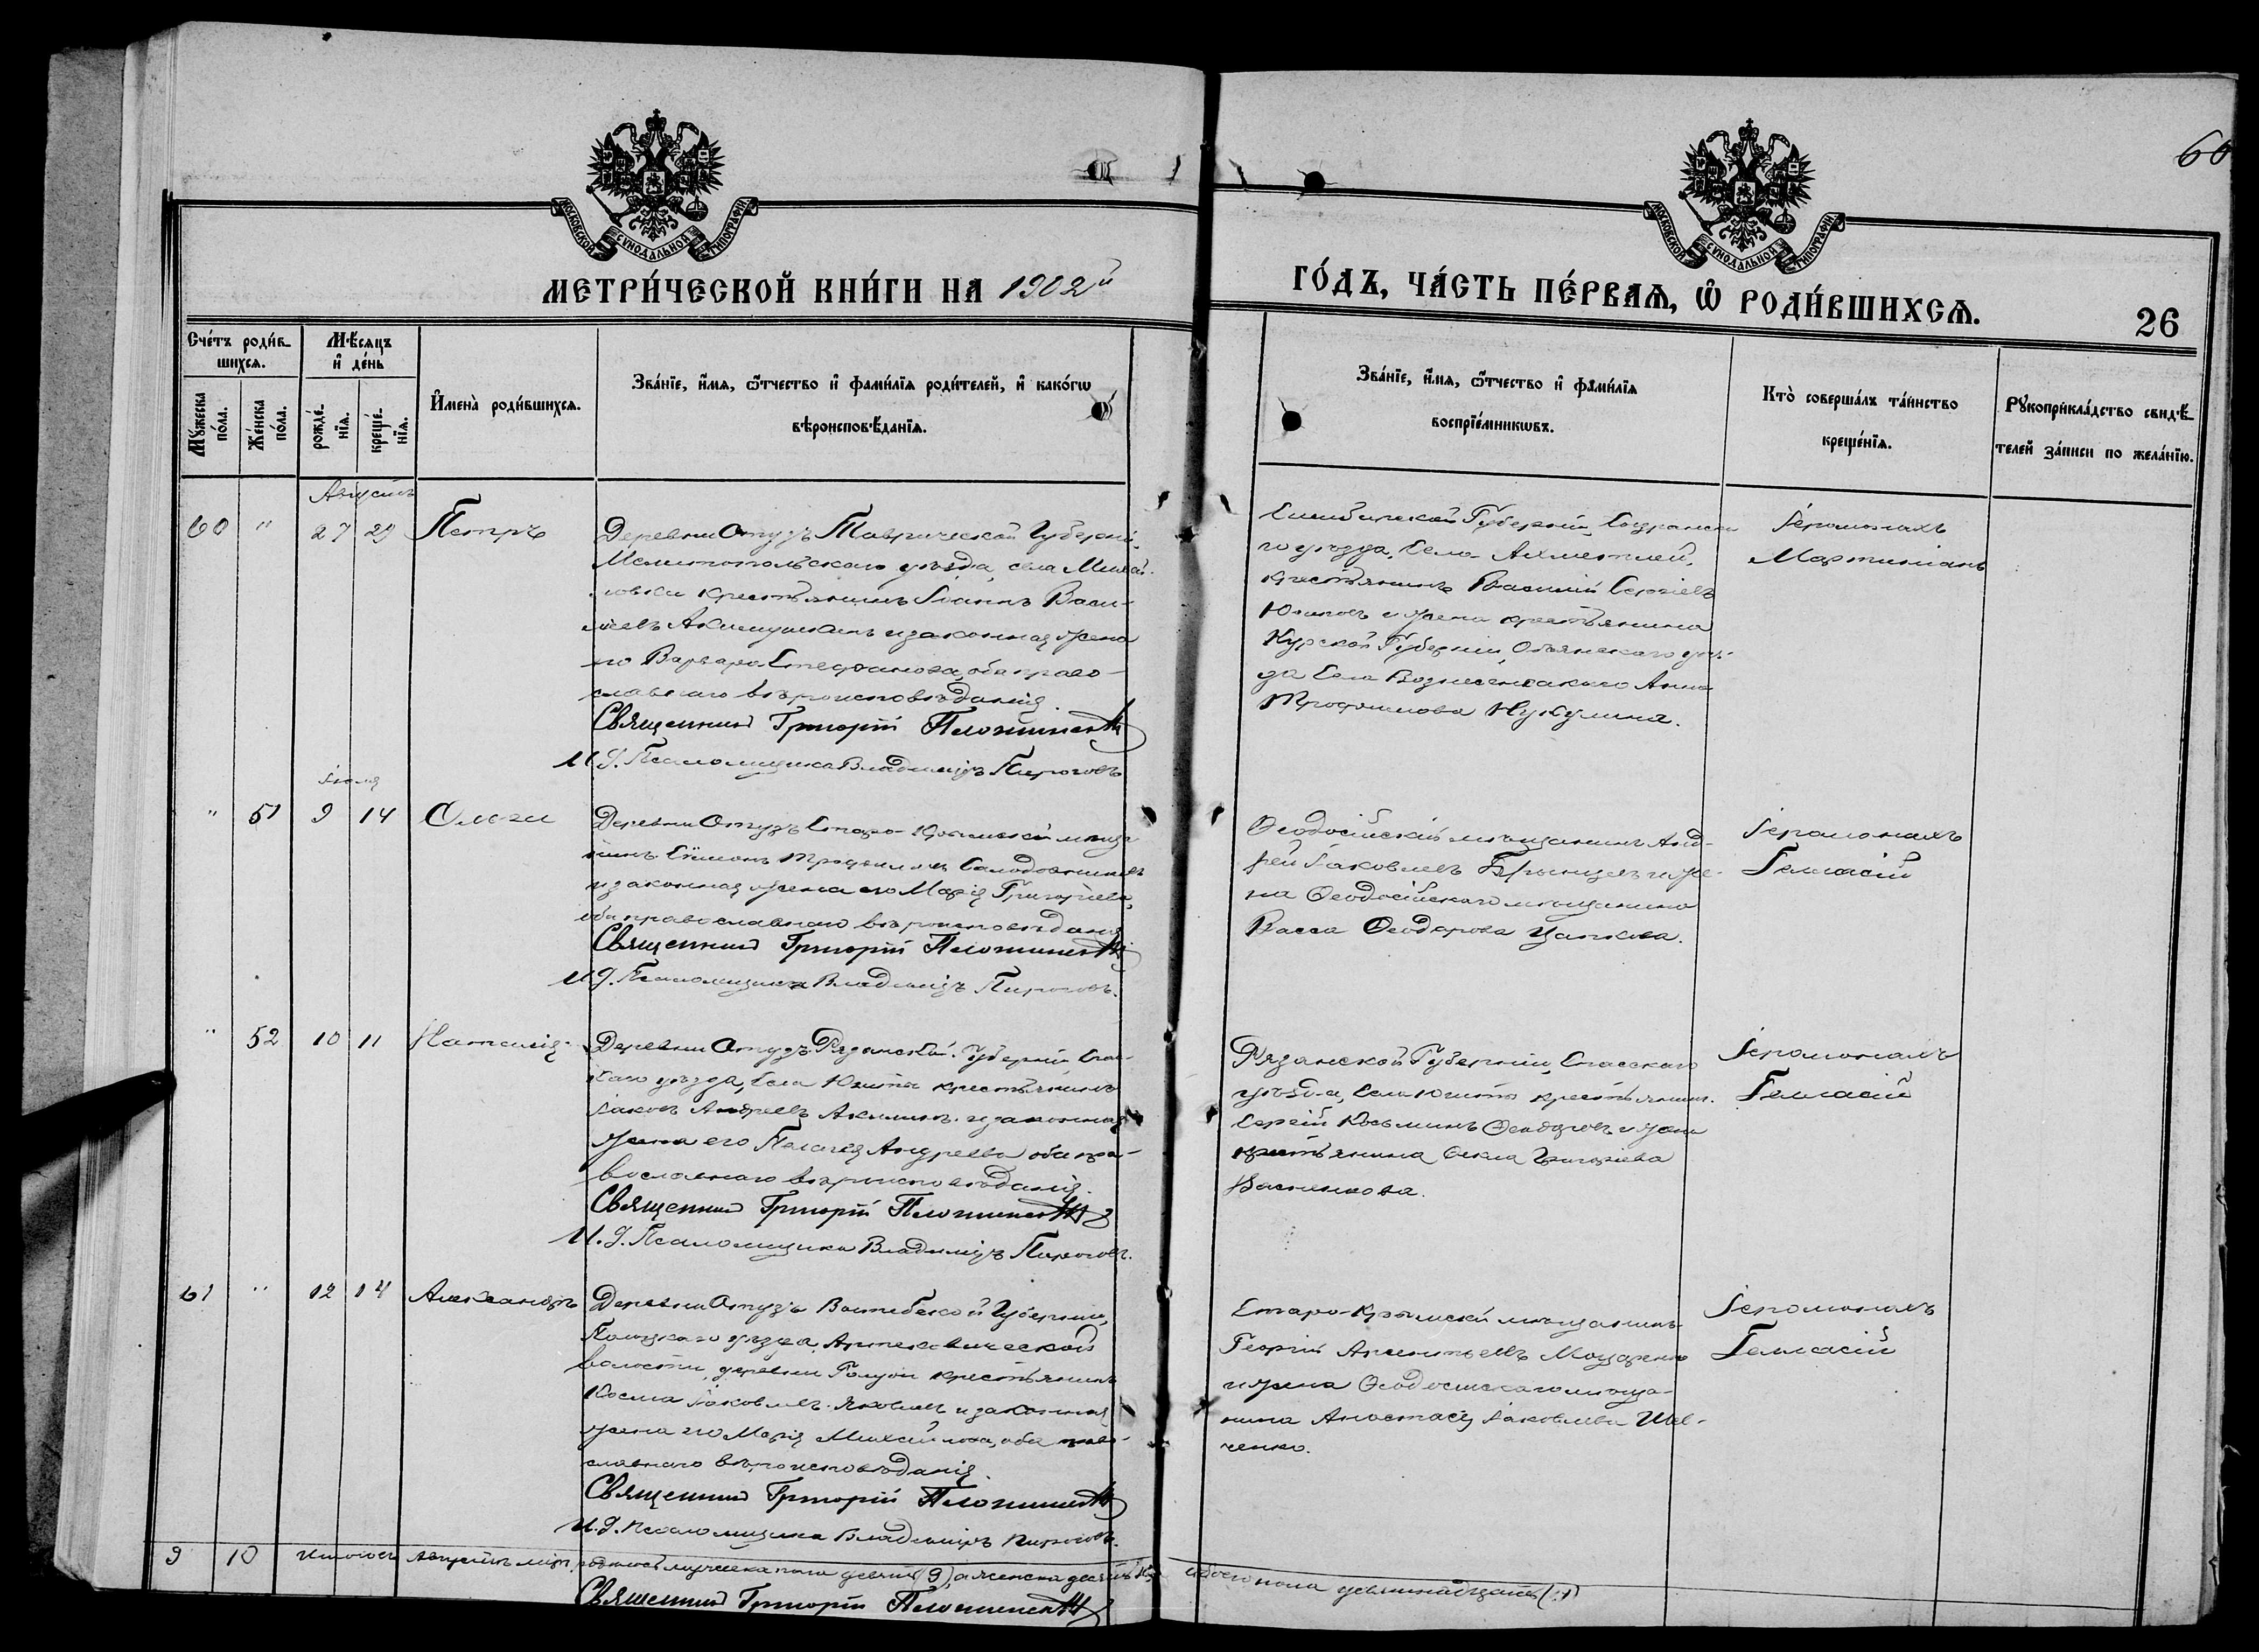 60
МОСКОВСКОЙ СѴНОДАЛЬНОЙ ТИПОГРАФІИ
МОСКОВСКОЙ СѴНОДАЛЬНОЙ ТИПОГРАФІИ
МЕТРИ́ЧЕСКОЙ КНИ́ГИ НА 1902й
ГО́ДЪ, ЧА́СТЬ ПЕ́РВАѦ, Ѡ҆ РОДИ́ВШИХСѦ.
26
Сче́тъ роди́в-
шихсѧ.
Му́жеска по́ла.
Же́нска по́ла.
Мѣ́сѧцъ
и҆ де́нь
рожде́-
нїѧ.
креще́-
нїѧ.
И҆мена̀ роди́вшихсѧ.
Зва́нїе, и҆́мѧ, ѻ҆́тчество и҆ фами́лїѧ роди́телей, и҆ како́гѡ
вѣроисповѣ́данїѧ.
Зва́нїе, и҆́мѧ, ѻ҆́тчество и҆ фами́лїѧ
воспрїе́мникѡвъ.
Кто̀ соверша́лъ та́инство
креще́нїѧ.
Рꙋкоприкла́дство свидѣ́-
телей за́писи по жела́нїю.
Августъ
60 " 27 29 Петръ
Деревни Отузъ Таврической Губерніи,
Мелитопольскаго уѣзда, села Михай-
ловки крестьянинъ Іоаннъ Васи-
льевъ и законная жена
его Варвара Стефанова, оба право-
славнаго вѣроисповѣданія.
Священникъ Григорій
И. д. Псаломщика Владиміръ Пироговъ
Симбирской Губерніи, Сызранска-
го уѣзда, села Ахметлей,
крестьянинъ Василій Сергіевъ
и жена крестьянина
Курской Губерніи, Обоянскаго уѣз-
да Села Вознесенскаго Анна
Трофимова
Іеромонахъ
Мартиніанъ
" 51 9 14 Ольга
Деревни Отузъ Старо-Крымскій мѣща-
нинъ Сѷмеонъ
и законная жена его Марія Григорьева,
оба православнаго вѣроисповѣданія
Священникъ Григорій
И. д. Псаломщика Владиміръ Пироговъ.
Ѳеодосійскій мѣщанинъ Анд-
рей Іаковлевъ и же-
на Ѳеодосійскаго мѣщанина
Васса Ѳеодорова Цапкова.
Іеромонахъ
Геласій
" 52 10 11 Наталія
Деревни Отузъ Рязанской Губерніи, Спас-
скаго уѣзда, села крестьянинъ
Іаковъ Андреевъ и законная
жена его Пелагея Андреева оба пра-
вославнаго вѣроисповѣданія.
Священникъ Григорій
И. д. Псаломщика Владиміръ Пироговъ.
Рязанской Губерніи, Спасскаго
уѣзда, села крестьянин.
Сергій Косьминъ Ѳеодоровъ и жена
крестьянина Ѳекла Григоріева
Іеромонахъ
Геласій
61 " 12 14 Александръ
Деревни Отузъ Витебской Губерніи,
Полоцкаго уѣзда,
волости, деревни крестьянинъ
Косма Іаковлевъ Яковлевъ и законная
жена его Марія Михайлова, оба право-
славнаго вѣроисповѣданія.
Священникъ Григорій
И. д. Псаломщика Владиміръ Пироговъ.
Старо-Крымскій мѣщанинъ
Георгій
и жена Ѳеодосійскаго мѣща-
нина Анастасія Іаковлева Шев-
ченко.
Іеромонахъ
Геласій
9 10 Августѣ мужеска пола девять (9), а женска обоего пола девятнадцать
Священникъ Григорій